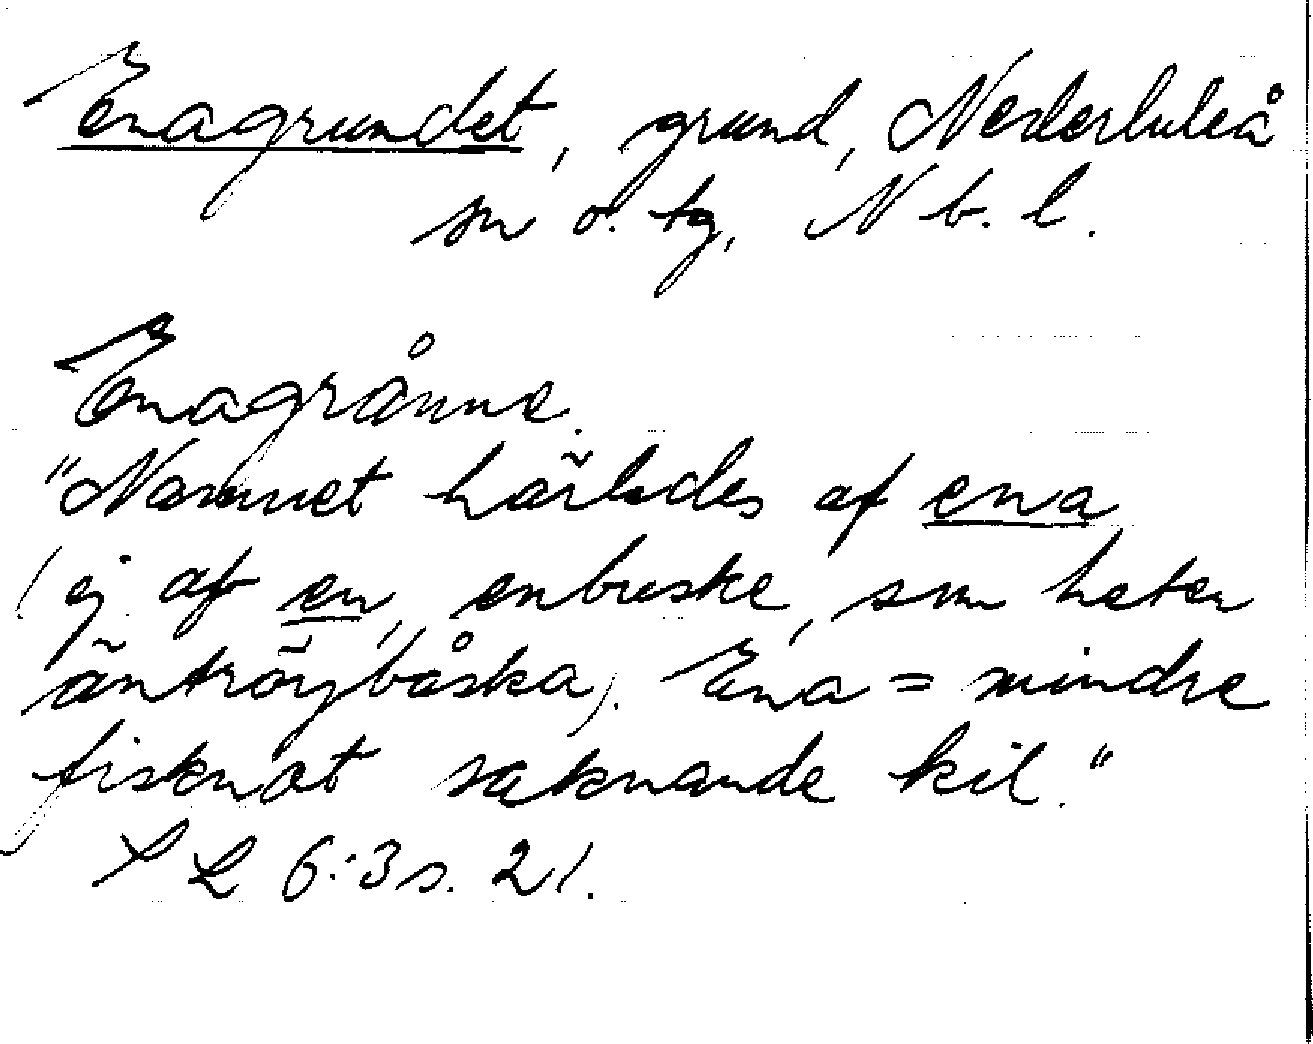 Enagrundet, grund, Nederluleå
sn o. tg, Nb. l.
Enagrånne.
"Namnet härledes af ena
(ej af en, enbuske, som heter
äntröjbåska). Ena = mindre
fisknot saknande kil."
S L 6:3 s. 21.